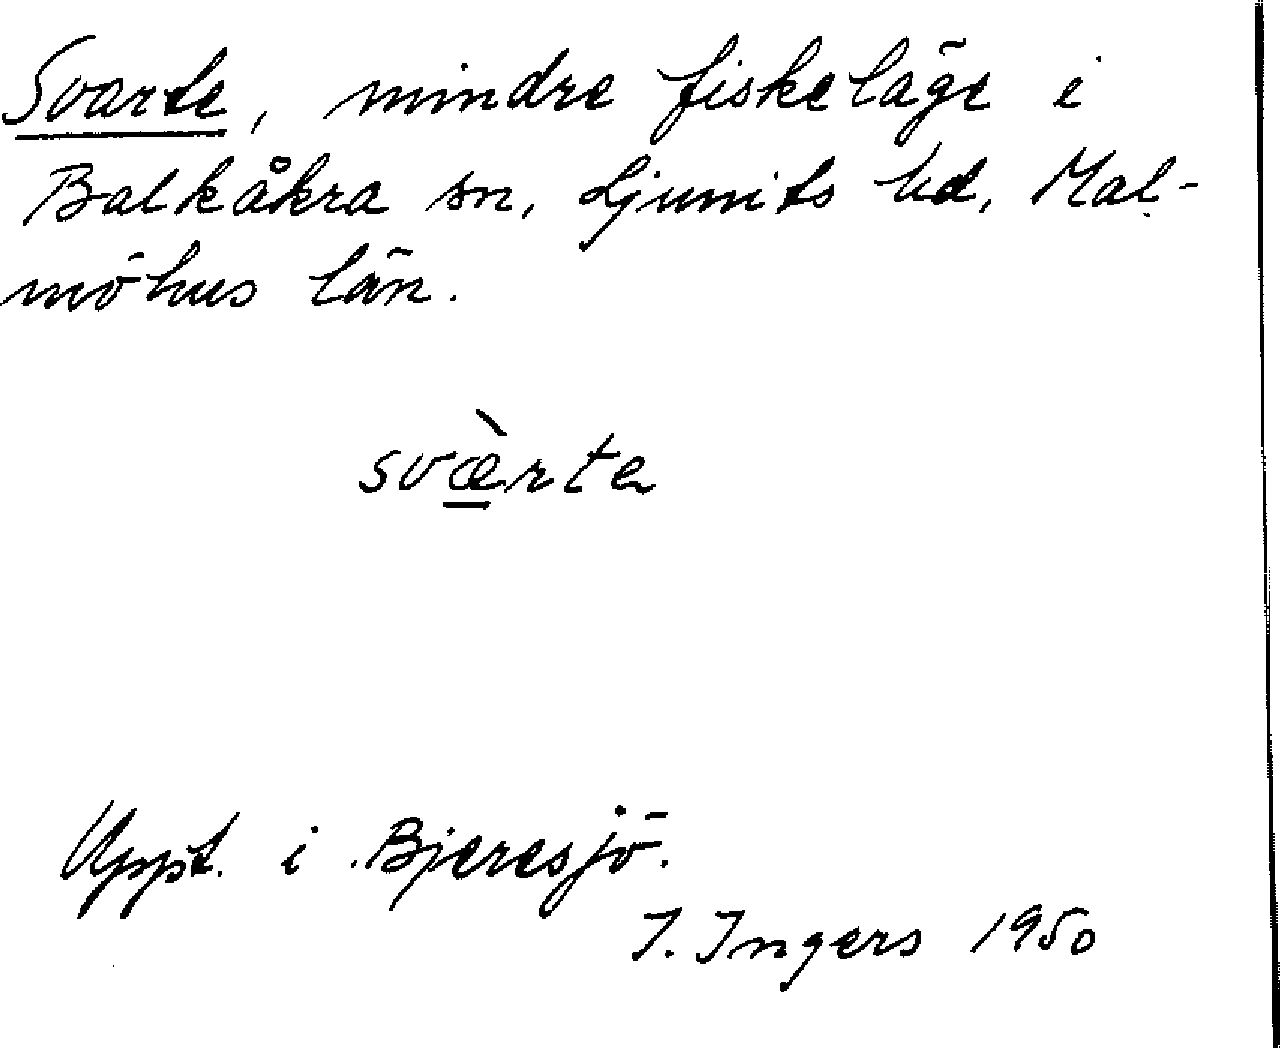 Svarte, mindre fiskeläge i
Balkåkra sn, Ljunits hd, Mal-
möhus län.
svæ̀rte
Uppt. i Bjeresjö.
I. Ingers 1950